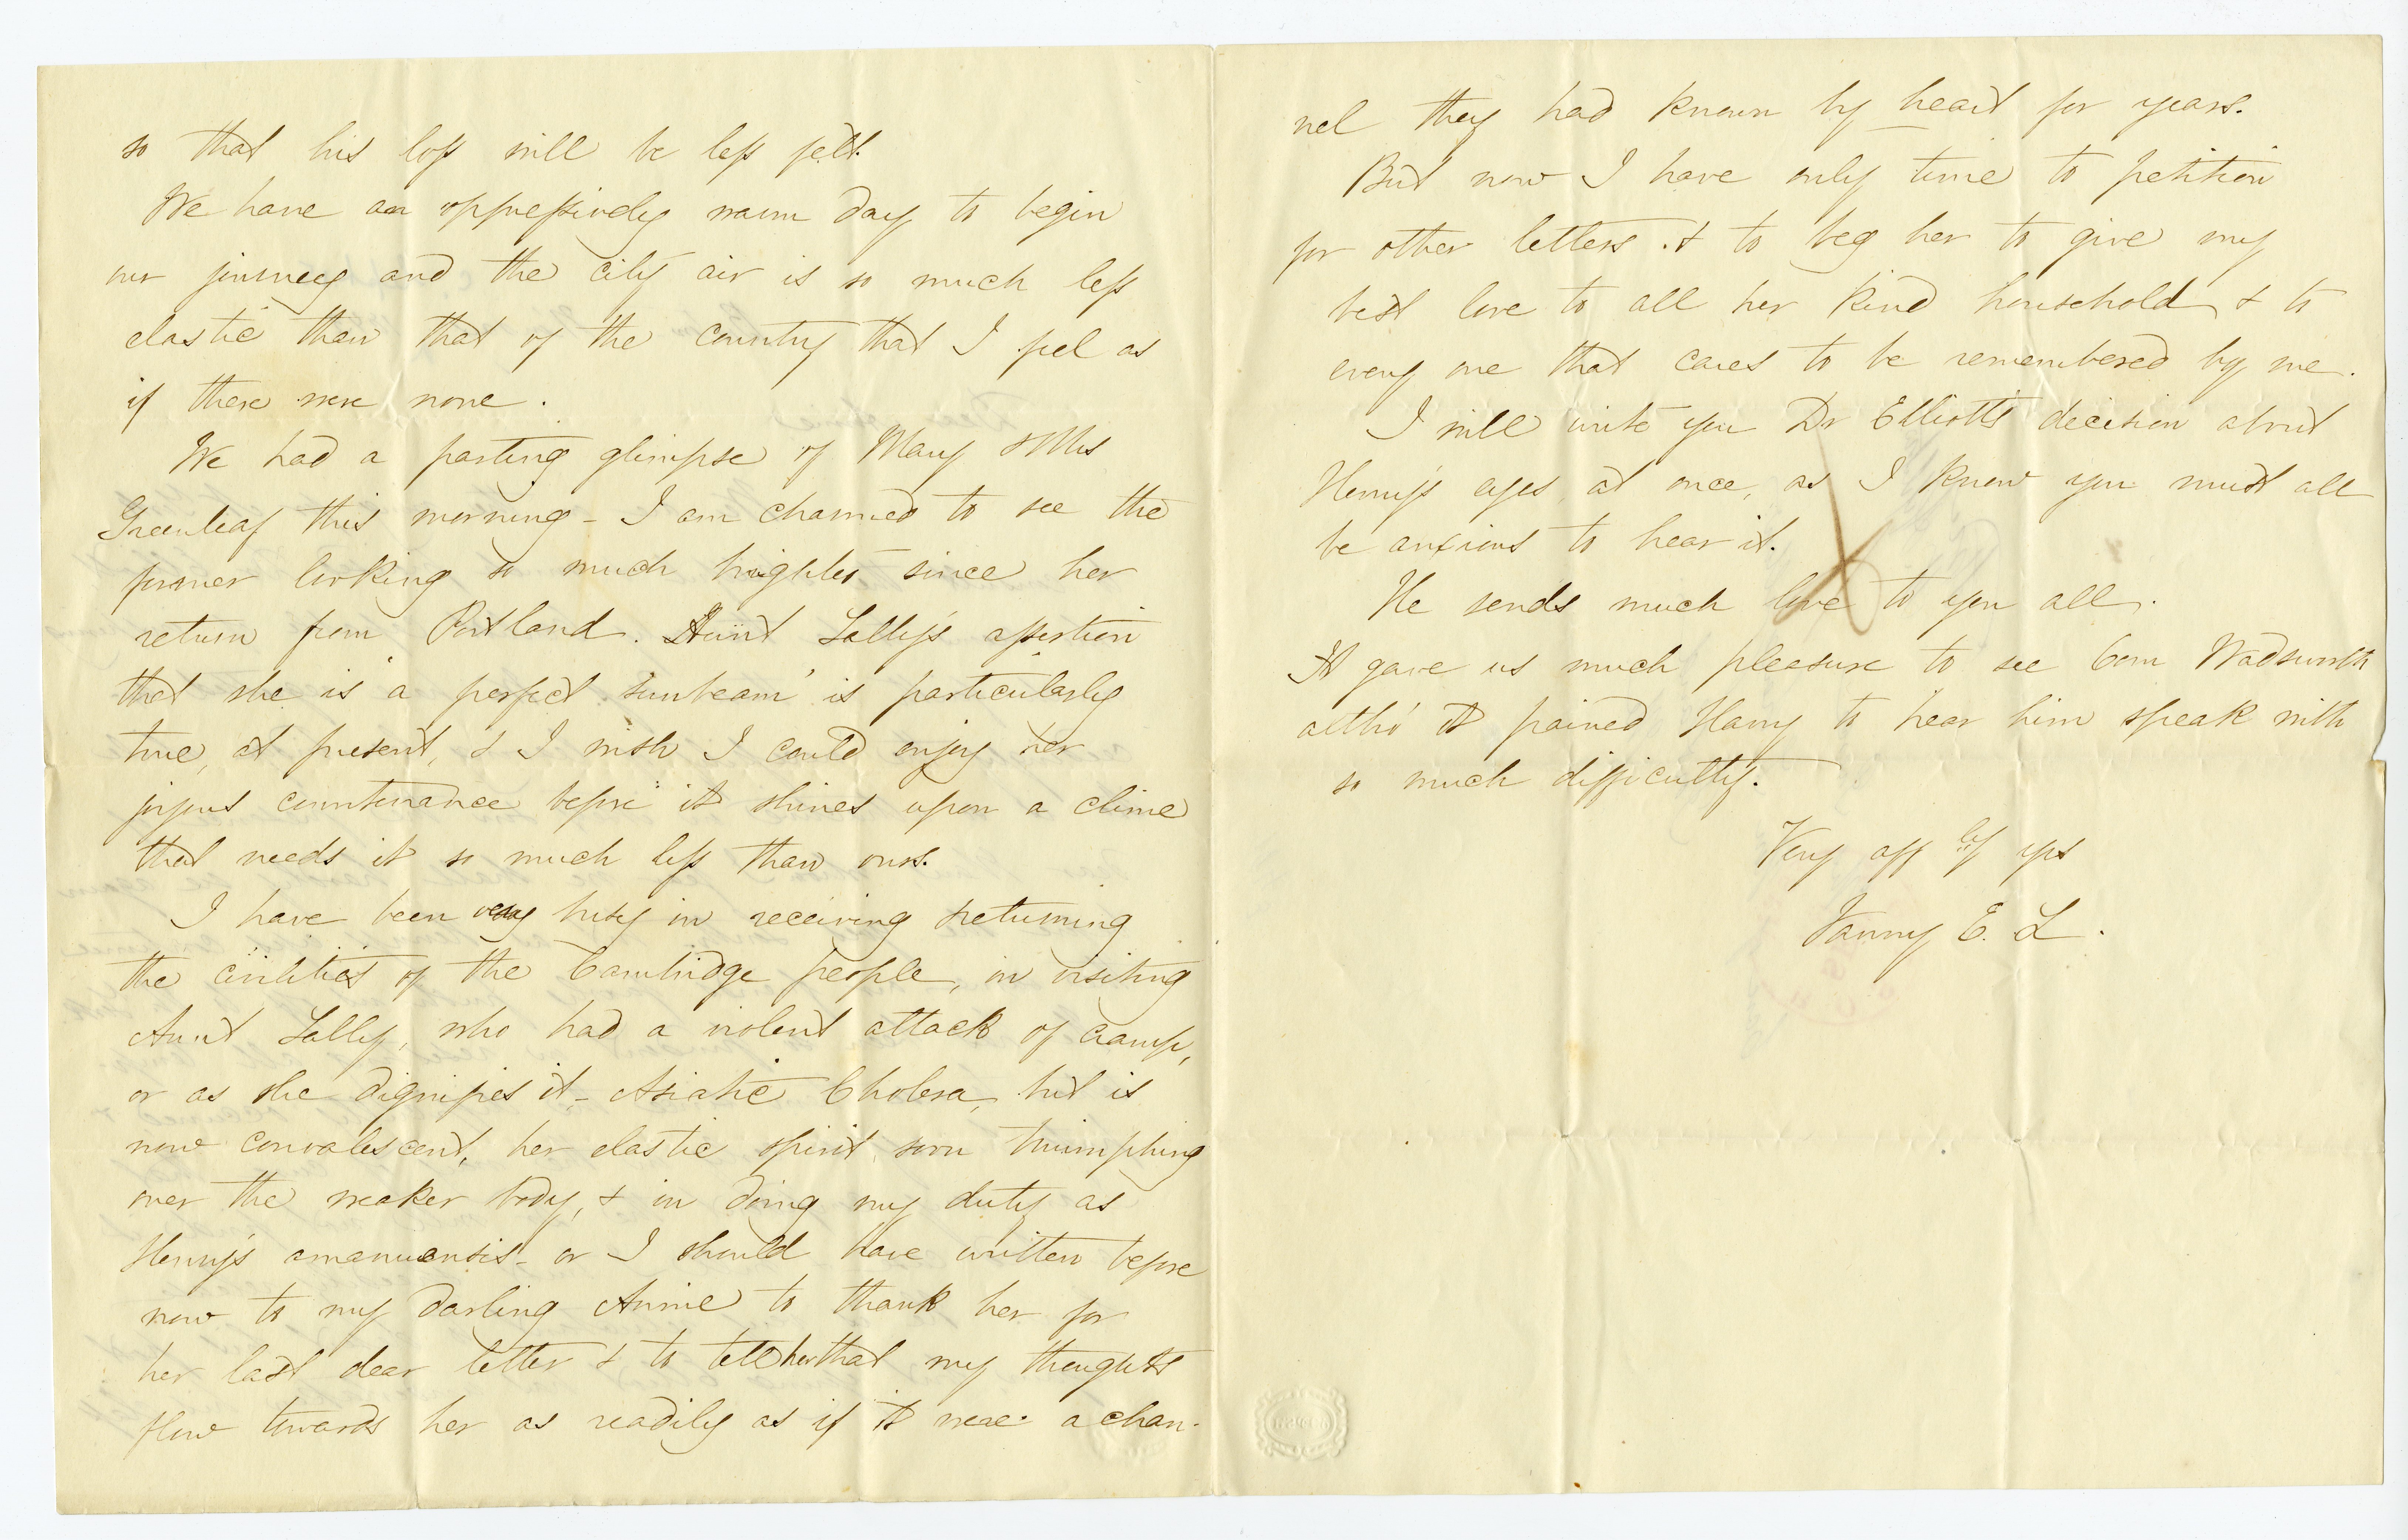 so that his loss will be less felt.
We have an oppressively warm day to begin
our journey and the city air is so much less
elastic than that of the country that I feel as
if there were none.
We had a parting glimpse of Mary & Mrs
Greenleaf this morning - I am charmed to see the
former looking so much brighter since her
return from Portland. Aunt Sally's assertion
that she is 'a perfect sunbeam' is particularly
true, at present, & I wish I could enjoy her
joyous countenance before it shines upon a clime
that needs it so much less than ours.
I have been very busy in receiving & returning
the civilities of the Cambridge people, in visiting
Aunt Sally, who had a violent attack of cramp,
or as she dignifies it - Asiatic Cholera, but is
now convalescent, her elastic spirit soon triumphing
over the weaker body, & in doing my duty as
Henry's amanuensis - or I should have written before
now to my darling Annie to thank her for
her last dear letter & to tell her that my thoughts
flow towards her as readily as if it were a chan-
nel they had known by heart for years.
But now I have only time to petition
for other letters & to beg her to give my
best love to all her kind household & to
every one that cares to be remembered by me.
I will write you Dr Elliott's decision about
Henry's eyes at once, as I know you must all
be anxious to hear it.
He sends much love to you all.
It gave us much pleasure to see Com Wadsworth
altho' it pained Harry to hear him speak with
so much difficulty.
Very aff ly yrs
Fanny E. L.